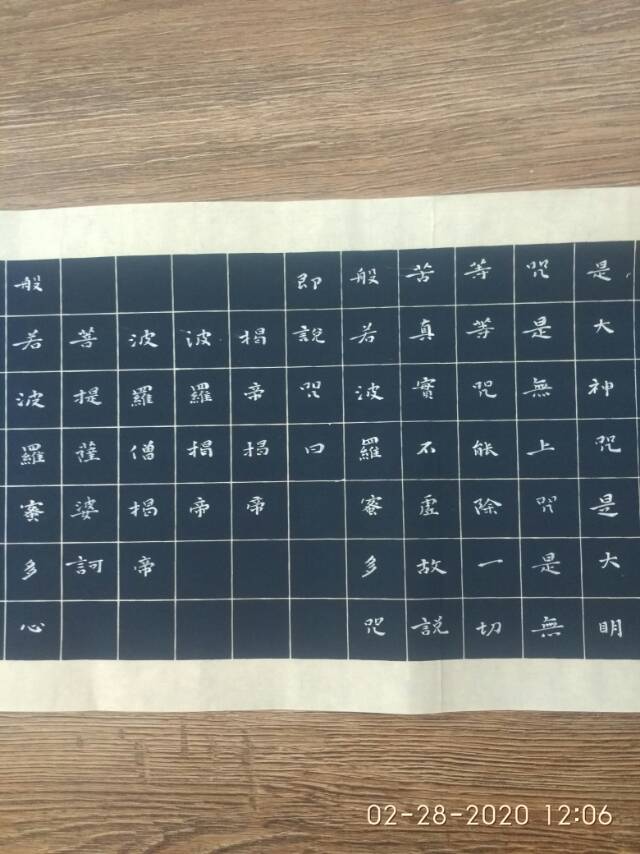 是大神咒是大明
咒是無上咒是無
等等咒能除一切
苦真實不虛故說
般若波羅蜜多咒
即說咒曰
揭帝揭帝
波羅揭帝
波羅僧揭帝
菩提薩婆訶
般若波羅蜜多心
02-28-2020 12:06